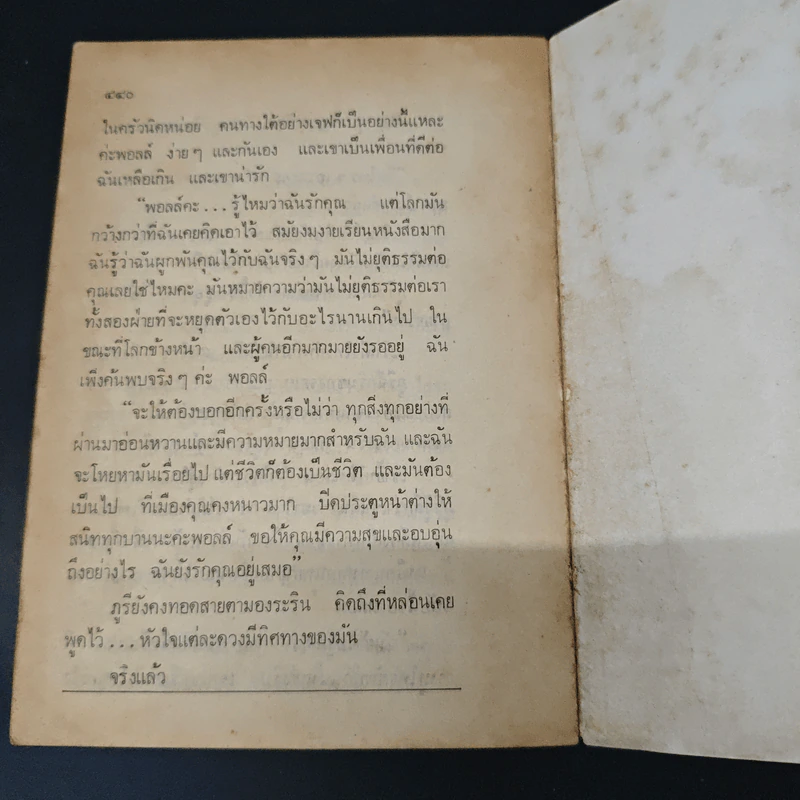 ๔๔๐
ในครัวนิดหน่อย คนทางใต้อย่างเจฟก็เป็นอย่างนี้แหละ
ค่ะพอลล์ ง่าย ๆ และกันเอง และเขาเป็นเพื่อนที่ดีต่อ
ฉันเหลือเกิน และเขาน่ารัก
“พอลล์คะ ... รู้ไหมว่าฉันรักคุณ แต่โลกมัน
กว้างกว่าที่ฉันเคยคิดเอาไว้ สมัยงมงายเรียนหนังสือมาก
ฉันรู้ว่าฉันผูกพันคุณไว้กับฉันจริง ๆ มันไม่ยุติธรรมต่อ
คุณเลยใช่ไหมคะ มันหมายความว่ามันไม่ยุติธรรมต่อเรา
ทั้งสองฝ่ายที่จะหยุดตัวเองไว้กับอะไรนานเกินไป ใน
ขณะที่โลกข้างหน้า และผู้คนอีกมากมายยังรออยู่ ฉัน
เพิ่งค้นพบจริง ๆ ค่ะ พอลล์
“จะให้ต้องบอกอีกครั้งหรือไม่ว่า ทุกสิ่งทุกอย่างที่
ผ่านมาอ่อนหวานและมีความหมายมากสำหรับฉัน และฉัน
จะโหยหามันเรื่อยไป แต่ชีวิตก็ต้องเป็นชีวิต และมันต้อง
เป็นไป ที่เมืองคุณคงหนาวมาก ปิดประตูหน้าต่างให้
สนิททุกบานนะคะพอลล์ ขอให้คุณมีความสุขและอบอุ่น
ถึงอย่างไร ฉันยังรักคุณอยู่เสมอ”
ภูรียังคงทอดสายตามองระริน คิดถึงที่หล่อนเคย
พูดไว้ ... หัวใจแต่ละดวงมีทิศทางของมัน
จริงแล้ว